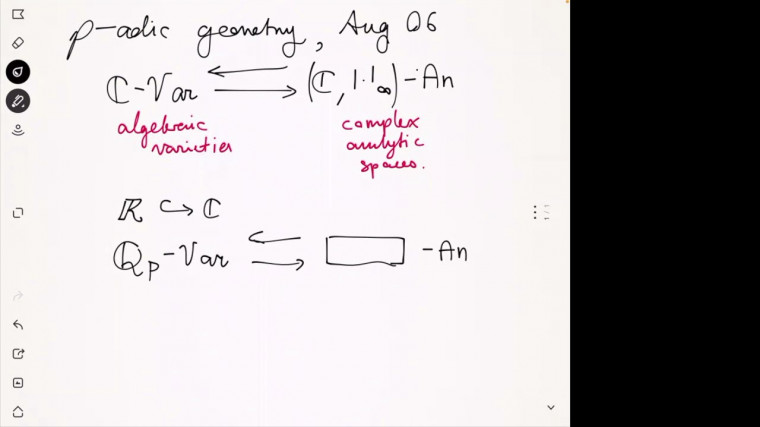 p-adic geometry, Aug 06
ℂ-Var ⇄ (ℂ, |·|∞)-An
algebraic varieties
complex analytic spaces.
ℝ ↪ ℂ
ℚp-Var ⇄ ▭ -An